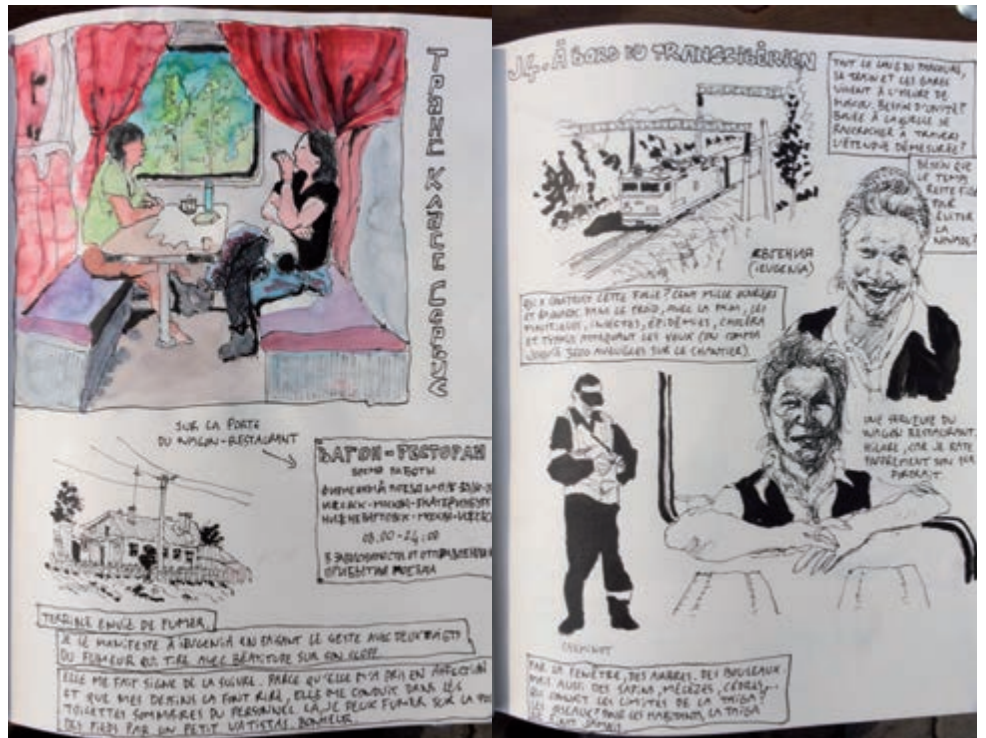 SUR LA PORTE
DU WAGON-RESTAURANT
ВАГОН-РЕСТОРАН
ВРЕМЯ РАБОТЫ
ФИРМЕННЫЙ ПОЕЗД
ИЖЕВСК-МОСКВА-ЕКАТЕРИНБУРГ
НИЖНЕВАРТОВСК-МОСКВА-
08.00-24:00
В ЗАВИСИМОСТИ ОТ ОТПРАВЛЕНИЯ
ПРИБЫТИЯ ПОЕЗДА
TERRIBLE ENVIE DE FUMER.
JE LE MANIFESTE À IEUGENIA EN FAISANT LE GESTE AVEC DEUX DOIGTS
DU FUMEUR QUI TIRE AVEC BÉATITUDE SUR SON CLOPE.
ELLE ME FAIT SIGNE DE LA SUIVRE. PARCE QU'ELLE M'A PRIS EN AFFECTION
ET QUE MES DESSINS LA FONT RIRE, ELLE ME CONDUIT DANS LES
TOILETTES SOMMAIRES DU PERSONNEL. LÀ, JE PEUX FUMER SUR LA
DES PIEDS PAR UN PETIT VASISTAS. BONHEUR.
J4. À BORD DU TRANSSIBÉRIEN
TOUT LE LONG DU PARCOURS,
LE TRAIN ET LES GARES
VIVENT À L'HEURE DE
MOSCOU. BESOIN D'UNITÉ?
BOUÉE À LAQUELLE SE
RACCROCHER À TRAVERS
L'ÉTENDUE DÉMESURÉE?
BESOIN QUE
LE TEMPS
RESTE FIGÉ
POUR
ÉVITER
LA
ЕВГЕНИЯ
(IEUGENIA)
QUI A CONSTRUIT CETTE FOLIE? CENT MILLE OUVRIERS
ET BAGNARDS DANS LE FROID, AVEC LA FAIM, LES
MOUSTIQUES, INSECTES, ÉPIDÉMIES, CHOLÉRA
ET TYPHUS ATTAQUANT LES YEUX (ON COMPTA
JUSQU'À AVEUGLES SUR LE CHANTIER).
UNE SERVEUSE DU
WAGON RESTAURANT.
HILARE, CAR JE RATE
ENTIÈREMENT SON 1ER
PORTRAIT.
CHEMINOT
PAR LA FENÊTRE, DES ARBRES. DES BOULEAUX
MAIS AUSSI DES SAPINS, MÉLÈZES, CÈDRES...
QUI CONNAÎT LES LIMITES DE LA TAÏGA?
LES OISEAUX? POUR LES HABITANTS, LA TAÏGA
NE FINIT JAMAIS.